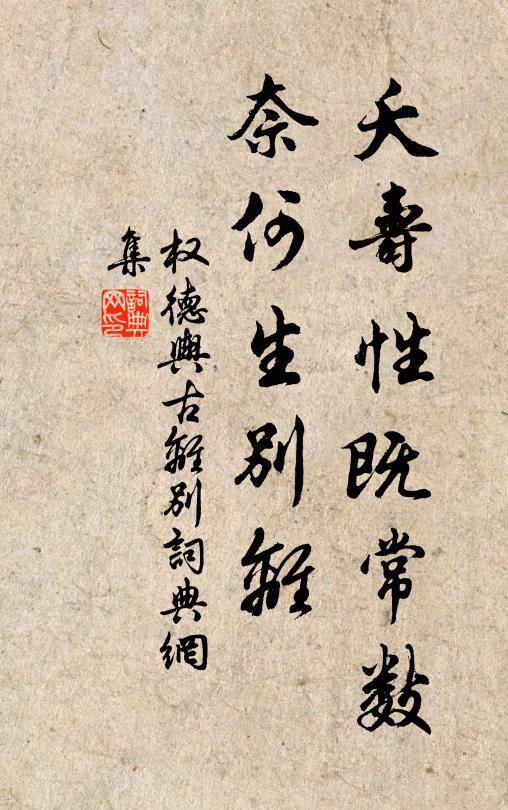 夭壽性既常數
奈何生別離
权德輿古離別詞典網
集
詞典
网印